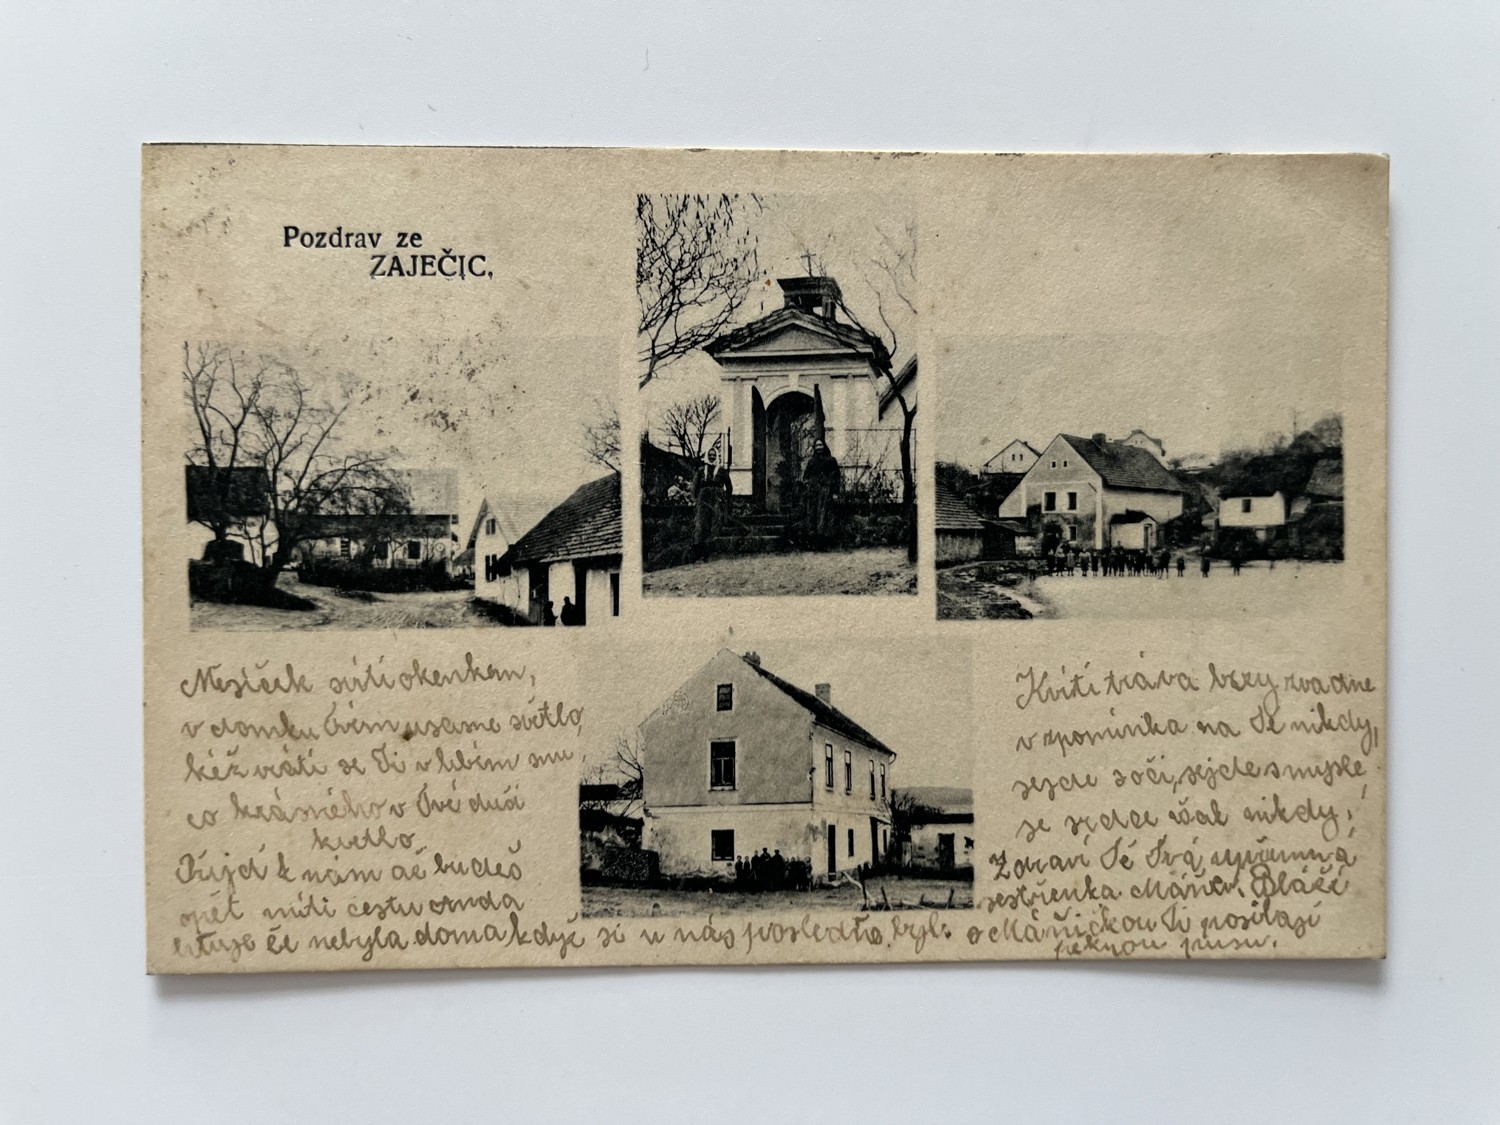 Pozdrav ze
ZAJEČIC.
Mesíček svítí okenkem,
v domku Tvém usame světlo,
kéž vrátí se Ti v libém snu,
co krásného v Tvé duši
kvetlo
Přijď k nám až budeš
opět míti cestu
lituje že nebyla doma když si u nás posledně byl.
Kvítí tráva brzy zvadne
vzpomínka na Tě nikdy,
sejde s očí, sejde s mysle,
se srdce však nikdy,
Zdraví Tě Tvá upřímná
sestřenka Máňa,
s Máničkou Ti posílají
peknou pusu.